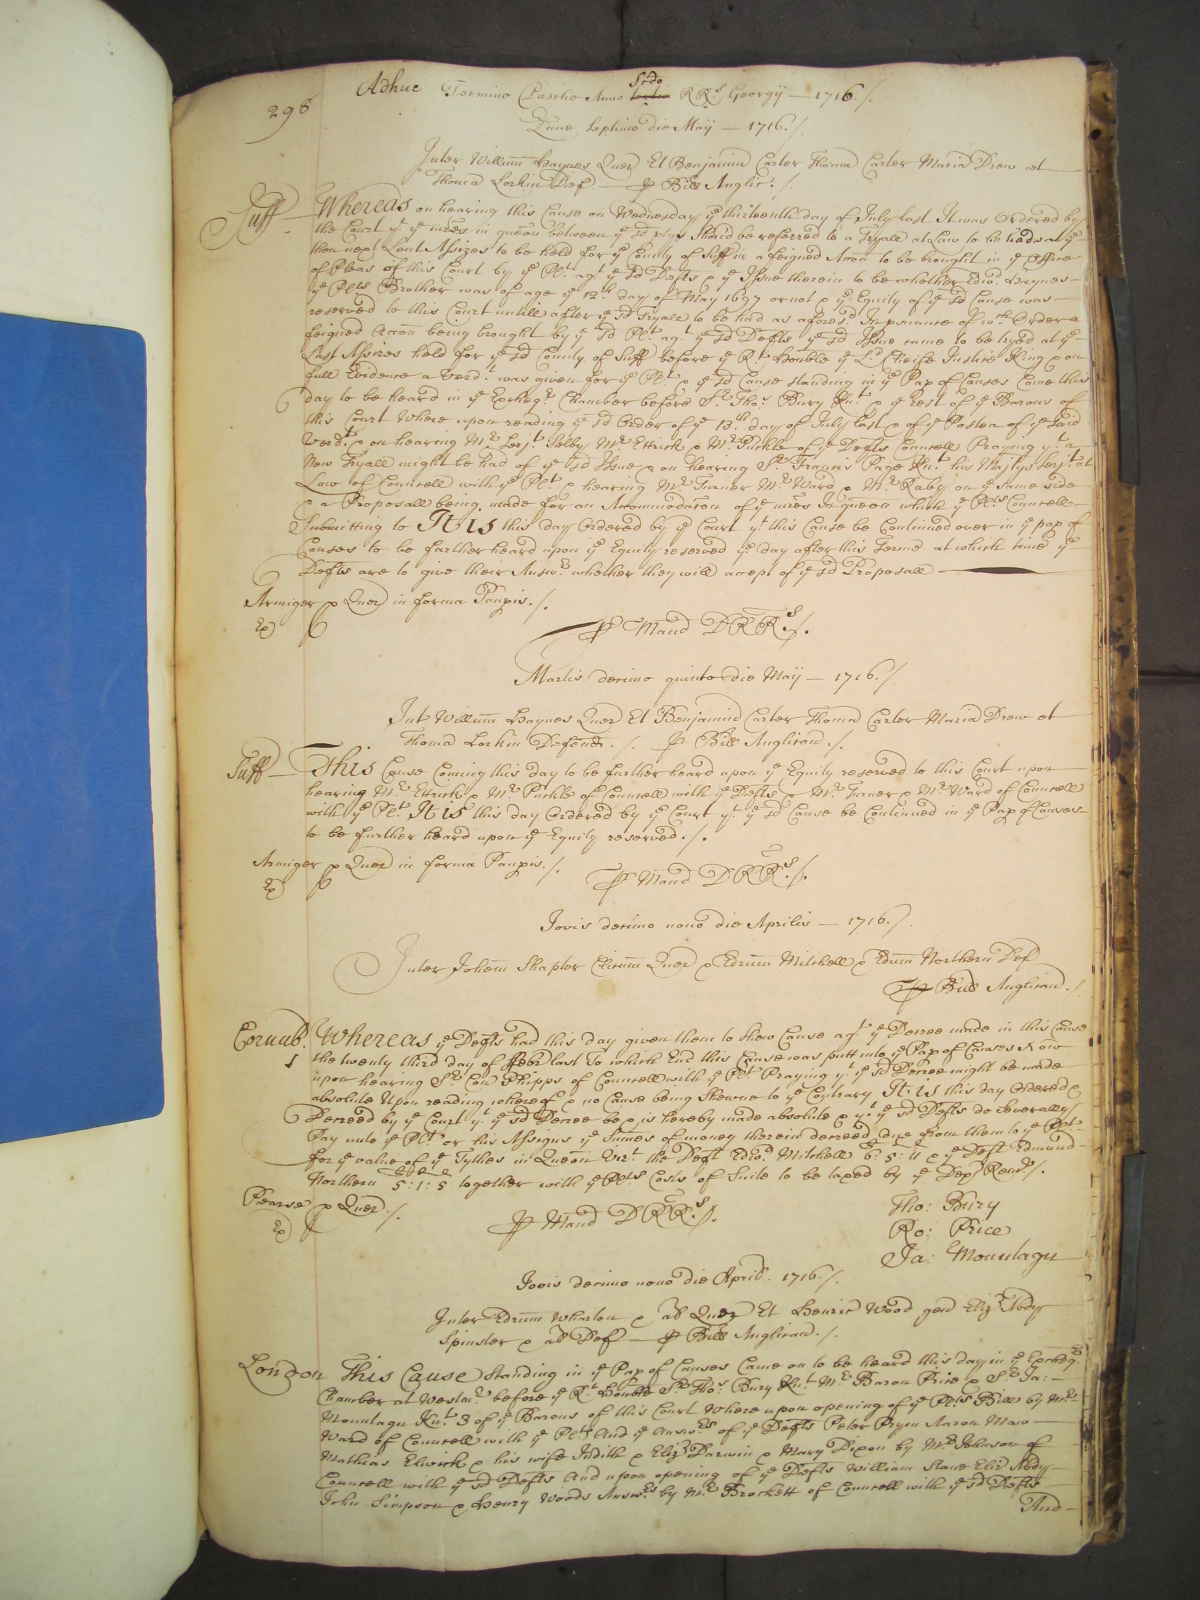 298
Adhuc Termino Pasche Anno Scdo R Rs Georgij — 1716 ./.
Lune septimo die Maij — 1716 ./.
Inter Willum Haynes Quer Et Benjamin Carter Thoma Carter Maria Drew et
Thoma Lorkin Def — P Bill Anglic ./.
Suff Whereas on hearing this Cause on Wednesday ye thirteenth day of July last It was Ordered by
the Court yt ye mres in queon between ye sd ptys should be referred to a Tryall at Law to be had at ye
then next Lent Assizes to be held for ye County of Suff in a feigned Accon to be brought in ye Office
of Pleas of this Court by ye Plt agt ye sd Defts & ye Issue therein to be whether Edwd Haynes
ye Plts Brother was of age ye 12th day of May 1697 or not & ye Equity of ye sd Cause was
reserved to this Court untill after ye sd Tryall to be had as aforesd In psuance of wch Order a
feigned Accon being brought by ye sd Plt agt ye sd Defts ye sd Issue came to be tryed at ye
Last Assizes held for ye sd County of Suff before ye Rt Honble ye Ld Cheife Justice King & on
full Evidence a Verdt was given for ye Plt & ye sd Cause standing in ye Pap of Causes Came this
day to be heard in ye Excheqr Chamber before Sr Thos Bury Knt & ye rest of ye Barons of
this Court Where upon reading ye sd Order of ye 13th day of July last & of ye Postea of ye said
Verdt & on hearing Mr Serjt Selby Mr Ettrick & Mr Puckle of ye Defts Councell Praying yt a
New Tryall might be had of ye sd Issue & on hearing Sr Francis Page Knt his Majtys Serjt at
Law of Councell with ye Plt & hearing Mr Turner Mr Ward & Mr Raby on ye same side
& a Proposall being made for an Accommodacon of ye mres In queon which ye Plts Councell
Submitting to It is this day Ordered by ye Court yt this Cause be Continued over in ye pap of
Causes to be further heard upon ye Equity reserved ye day after this Terme at which time ye
Defts are to give their Answr whether they will accept of ye sd Proposall
Armiger p Quer in forma Paupis ./.
Ex
P Mand D R Rs ./.
Martis decimo quinto die Maij — 1716 ./.
Int Willum Haynes Quer Et Benjamin Carter Thoma Carter Maria Drew et
Thoma Lorkin Defend ./. P Bill Anglican ./.
Suff This Cause Coming this day to be further heard upon ye Equity reserved to this Court upon
hearing Mr Ettrick & Mr Puckle of Councell with ye Defts & Mr Turner & Mr Ward of Councell
with ye Plt It is this day Ordered by ye Court yt ye sd Cause be Continued in ye Pap of Causes
to be further heard upon ye Equity reserved ./.
Armiger p Quer in forma Paupis ./.
Ex
P Mand D R Rs ./.
Jovis decimo nono die Aprilis — 1716 ./.
Inter Johem Shapter Clicum Quer & Edrum Mitchell & Edum Northern Def
P Bill Anglican ./.
Cornub. Whereas ye Defts had this day given them to shew Cause agt ye Decree made in this Cause
the twenty third day of Febr last To which End this Cause was putt into ye Pap of Causes Now
upon hearing Sr Con Phipps of Councell with ye Plt Praying yt ye sd Decree might be made
absolute Upon reading whereof & no Cause being Shewne to ye Contrary It is this day Ordered &
Decreed by ye Court yt ye sd Decree be & is hereby made absolute & yt ye sd Defts do severally
Pay unto ye Plt or his Assigns ye Sumes of money therein decreed due from them to ye Plt
for ye value of ye Tythes in Queon Vizt the Deft Edwd Mitchell 6: 5: 11 & ye Deft Edmund
Northern 5: 1: 5 together with ye Plts Costs of Suite to be taxed by ye Depty Remr ./.
Pearse p Quer ./.
Ex
P Mand D R Rs ./.
Tho: Bury
Ro: Price
Ja: Mountagu
Jovis decimo nono die April 1716 ./.
Inter Edrum Wharton & al Quer Et Henric Wood gen Eliz Abdy
Spinster & al Def — P Bill Anglican ./.
London This Cause standing in ye Pap of Causes Came on to be heard this day in ye Excheqr
Chamber at Westmr before ye Rt Honble Sr Thos Bury Knt Mr Baron Price & Sr Ja:
Mountagu Knt 3 of ye Barons of this Court Where upon opening of ye Plts Bill by Mr
Ward of Councell with ye Plt And ye Answrs of ye Defts Peter Pryon Aaron Maw
Mathias Elwick & his wife Judith & Eliz Darwin & Mary Dixon by Mr Johnson of
Councell with ye sd Defts And upon opening of ye Defts William Stane Eliz Abdy
John Simpson & Henry Woods Answrs by Mr Brockett of Councell with ye sd Defts
And